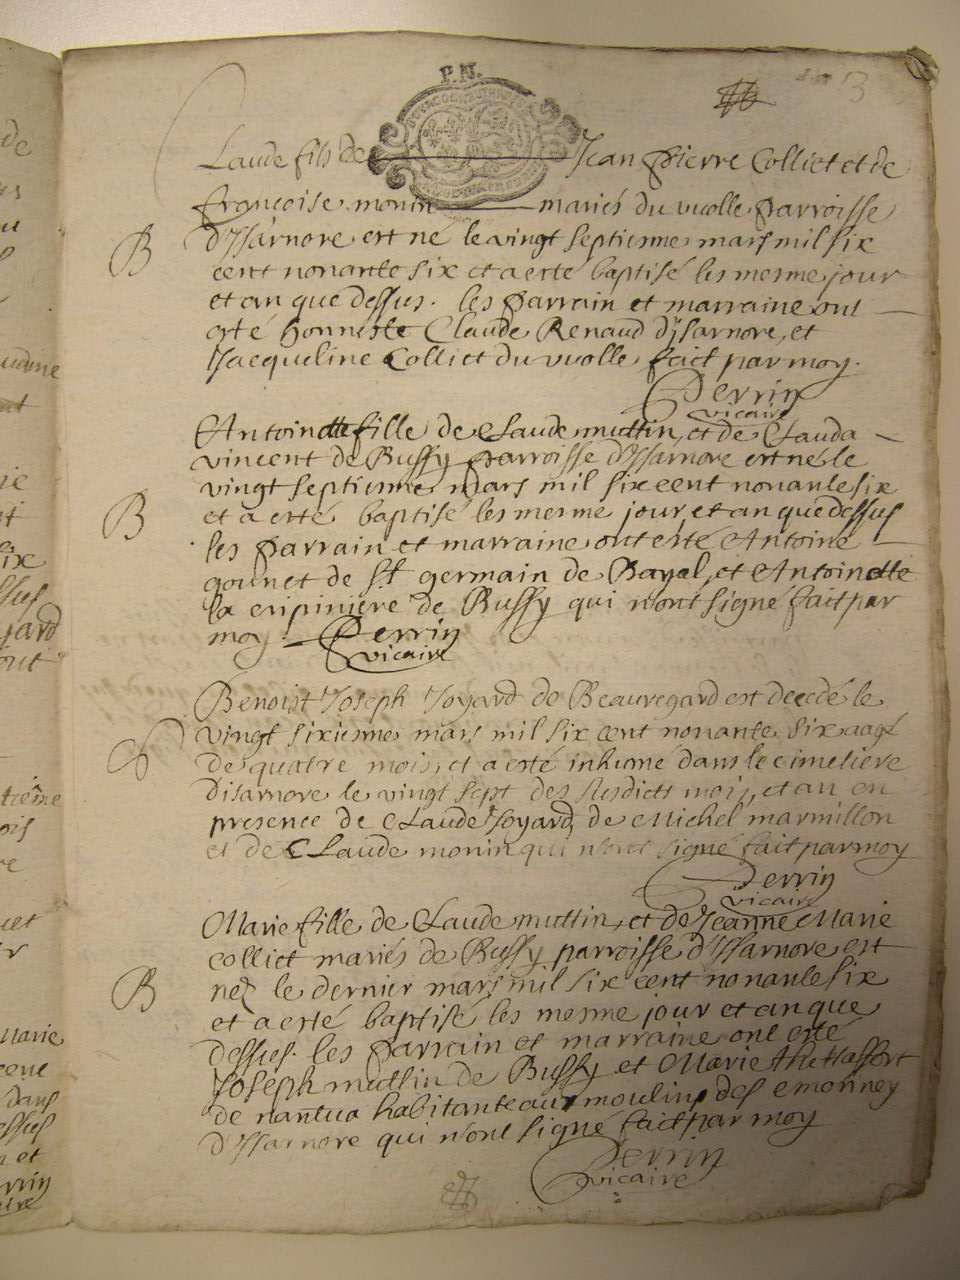 P.N.
3
Claude fils de Jean Pierre Colliet et de
françoise monin mariés du vuolle parroisse
d'Isarnore est né le vingt septienme mars mil six
cent nonante six et a esté baptisé les mesme jour
et an que dessus. les parrain et marraine ont
esté honneste Claude Renaud d'Isarnore, et
Jacqueline Colliet du vuolle fait par moy.
Perrin
vicaire
Antoinette fille de Claude muttin, et de Clauda
vincent de Bussy parroisse d'Isarnore est né le
B
vingt septienme mars mil six cent nonante six
et a esté baptisé les mesme jour et an que dessus
B
les parrain et marraine ont esté Antoine
gounet de St germain de Bayal, et Antoinette
la cripiniere de Bussy qui n'ont signé fait par
moy Perrin
vicaire
Benoist Joseph Joyard de Beauvegard est decedé le
vingt sixienme mars mil six cent nonante six aagé
de quatre mois, et a esté inhumé dans le cimetiere
disarnore le vingt sept des susdicts mois, et an en
presence de Claude Joyard, de Michel marmillon
et de Claude monin qui n'ont signé fait par moy
Perrin
vicaire
Marie fille de Claude muttin, et de Jeanne Marie
colliet mariés de Bussy parroisse d'Isarnore est
B
neé le dernier mars mil six cent nonante six
et a esté baptisé les mesme jour et an que
dessus. les parrain et marraine ont esté
Joseph muttin de Bussy et Marie
de nantua habitante aux moulins des emonney
d'Isarnore qui n'ont signé fait par moy
Perrin
vicaire